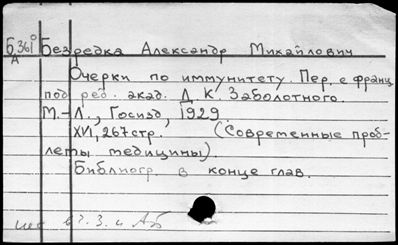 Б 361 Безредка Александр Михайлович
А
Очерки по иммунитету. Пер. с франц.
под ред. акад. Д. К. Заболотного.
М.-Л., Госизд, 1929.
XVI, 267стр. (Современные проб-
лемы медицины).
Библиогр. в конце глав.